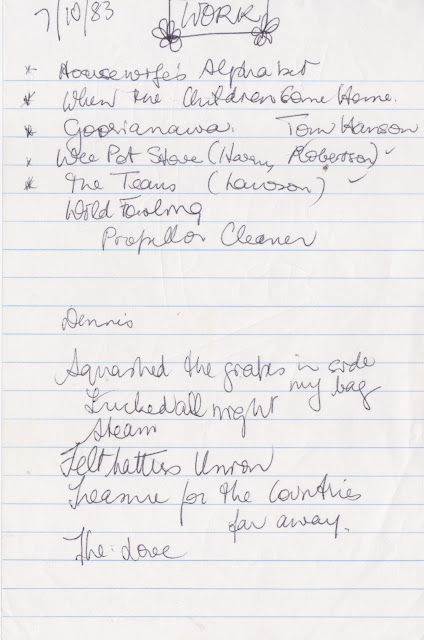 7/10/83 WORK
* Housewife's Alphabet
* When the Children Come Home.
* Goorianawa. Tom Hanson
* Wee Pot Stove (Harry Robertson) ✓
* The Teams (Lawson) ✓
Wild Fowling
Propellor Cleaner
Dennis
Squashed the grapes in side
my bag
all night
Steam
Felthatters Union
Treasure for the Countries
far away.
The Dove